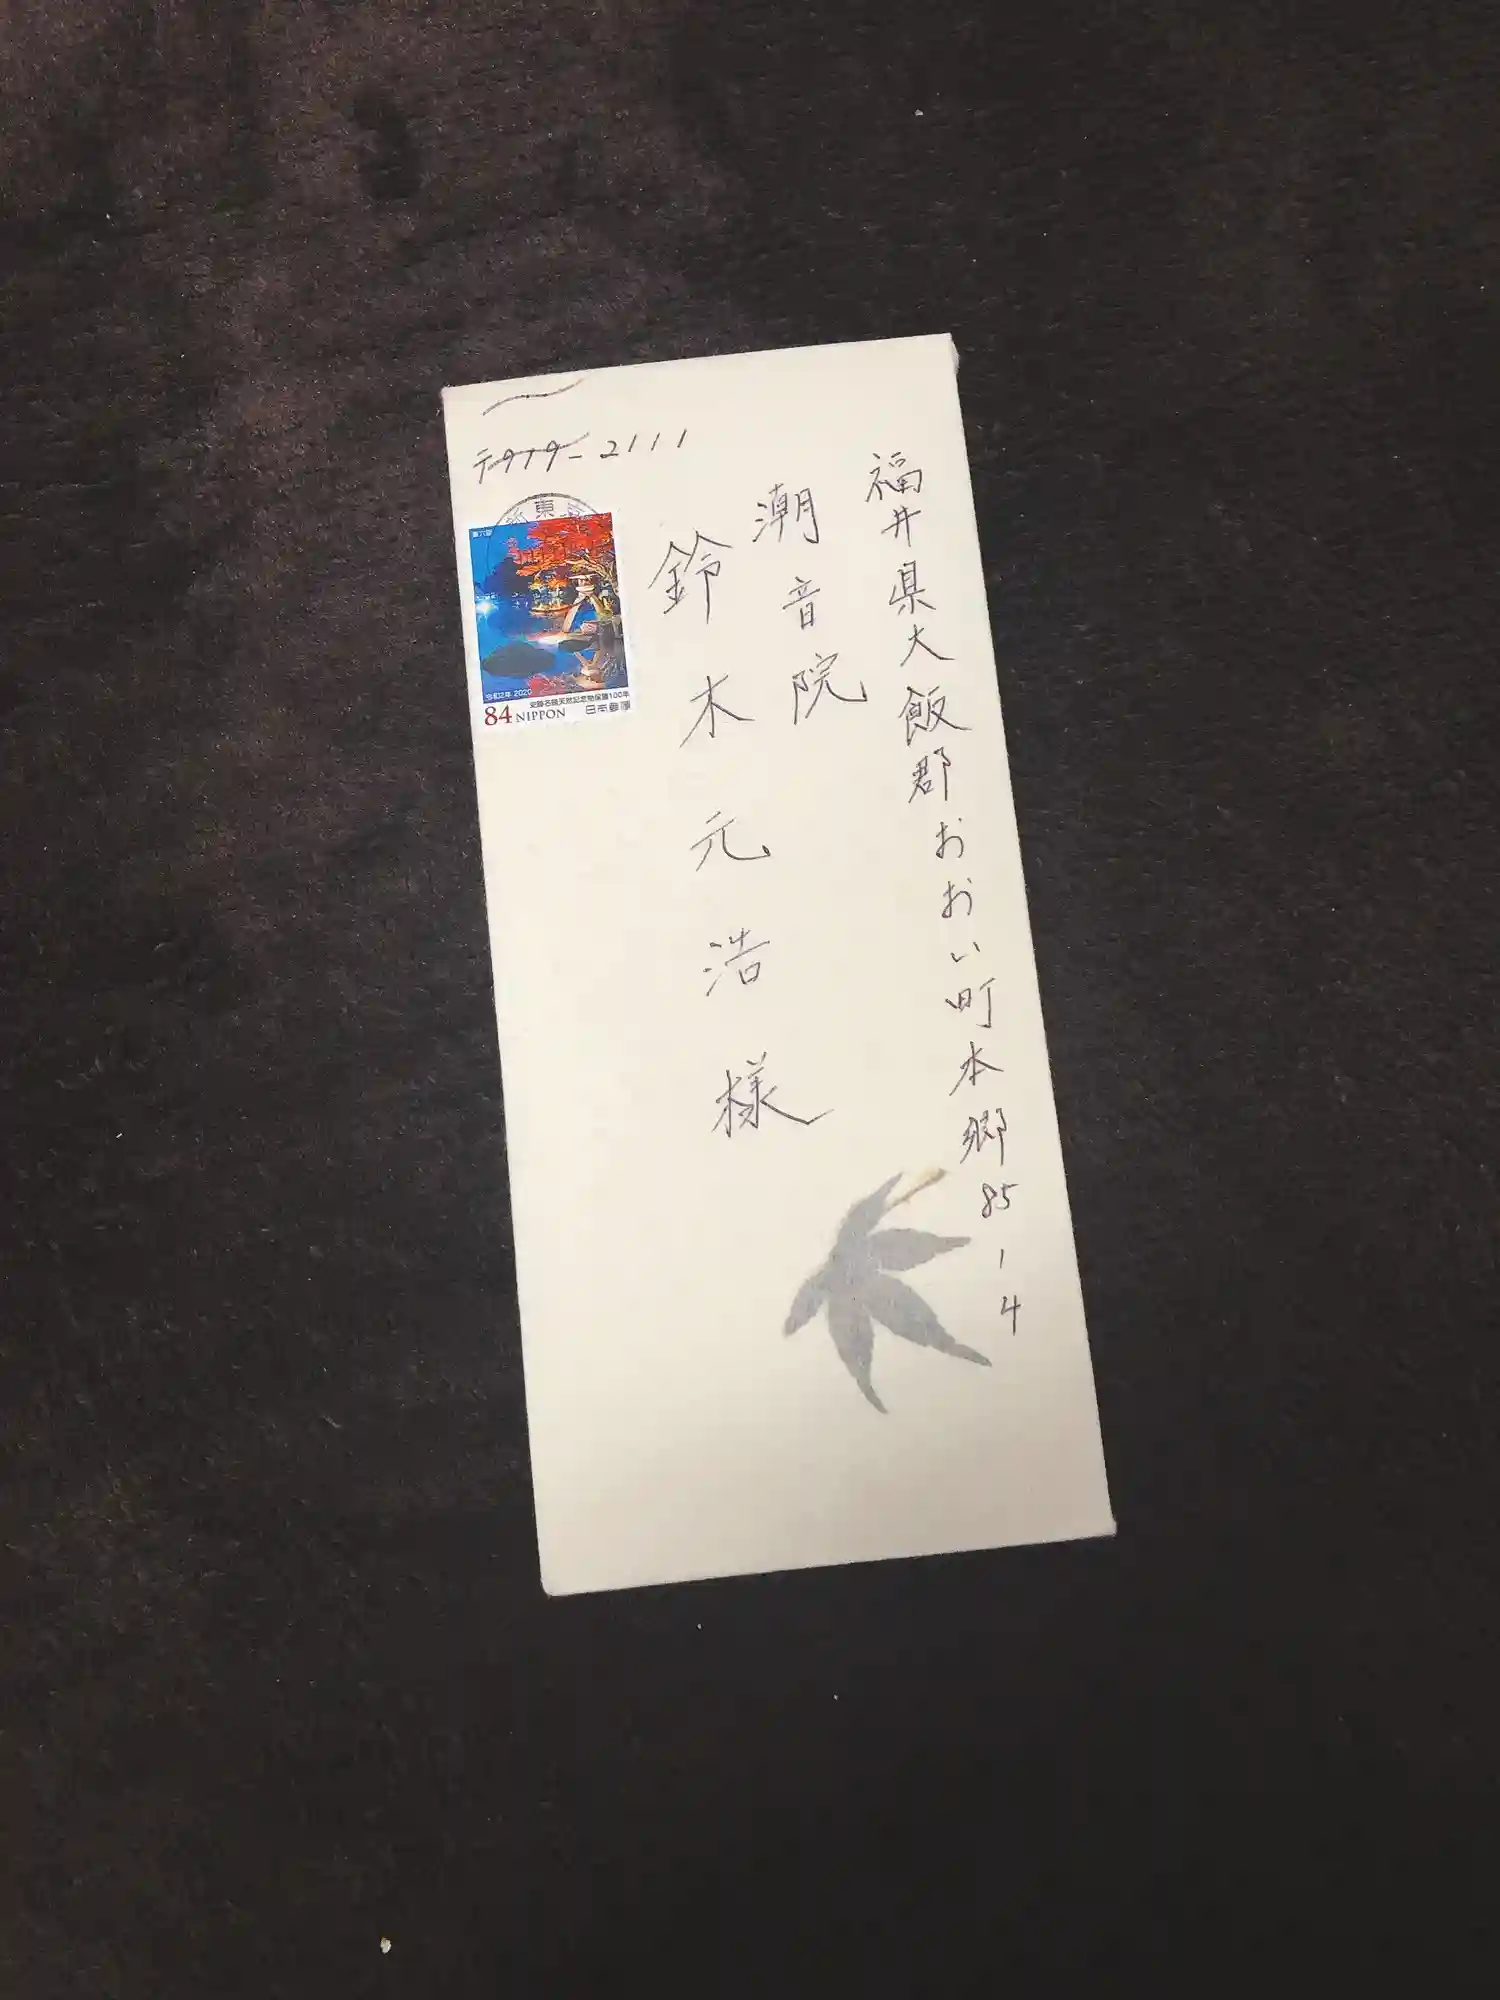 〒919-2111
福井県大飯郡おおい町本郷85-4
潮音院
鈴木元浩様
第六集
令和2年 2020
史跡名勝天然記念物保護100年
84 NIPPON 日本郵便
新東京